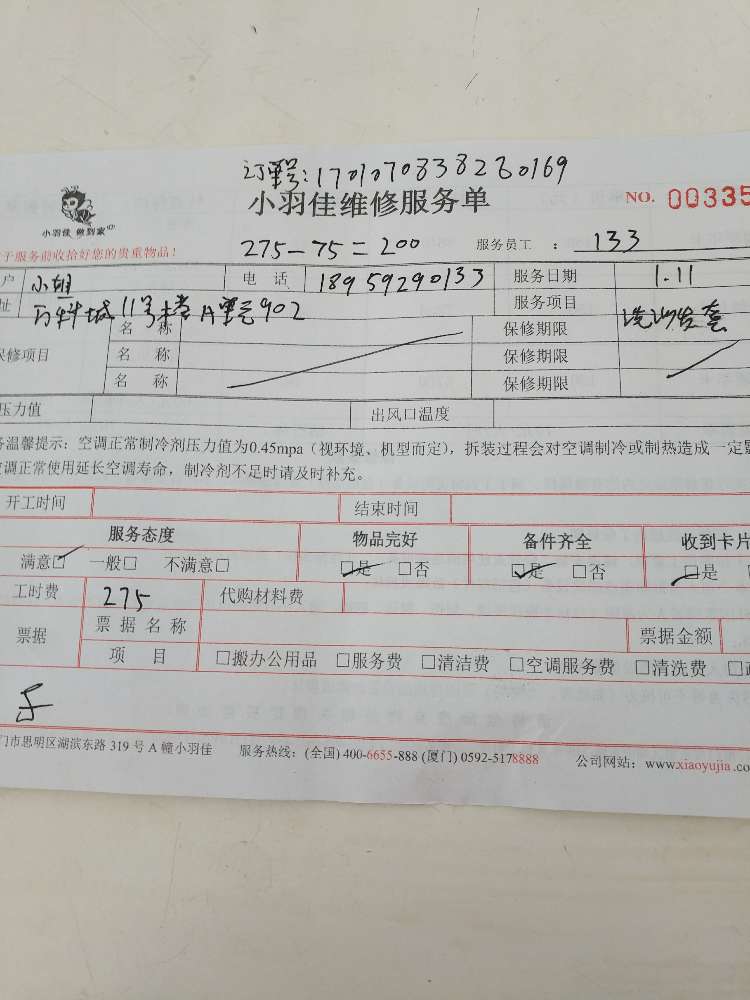 订单号:1701070838280169
小羽佳 做到家
小羽佳维修服务单 NO. 00335
于服务前收拾好您的贵重物品!
275-75=200 服务员工 : 133
户 小姐 电 话 18959290133 服务日期 1.11
址 万科城11号楼A单元902 服务项目 洗沙发套
保修项目 名 称 保修期限
名 称 保修期限
名 称 保修期限
压力值 出风口温度
温馨提示:空调正常制冷剂压力值为0.45mpa(视环境、机型而定),拆装过程会对空调制冷或制热造成一定
调正常使用延长空调寿命,制冷剂不足时请及时补充。
开工时间 结束时间
服务态度 物品完好 备件齐全 收到卡片
满意□ 一般□ 不满意□ □是 □否 □是 □否 □是
工时费 275 代购材料费
票据 票据名称 票据金额
项 目 □搬办公用品 □服务费 □清洁费 □空调服务费 □清洗费
门市思明区湖滨东路 319 号 A 幢小羽佳 服务热线:(全国) 400-6655-888 (厦门) 0592-5178888 公司网站:www.xiaoyujia.co